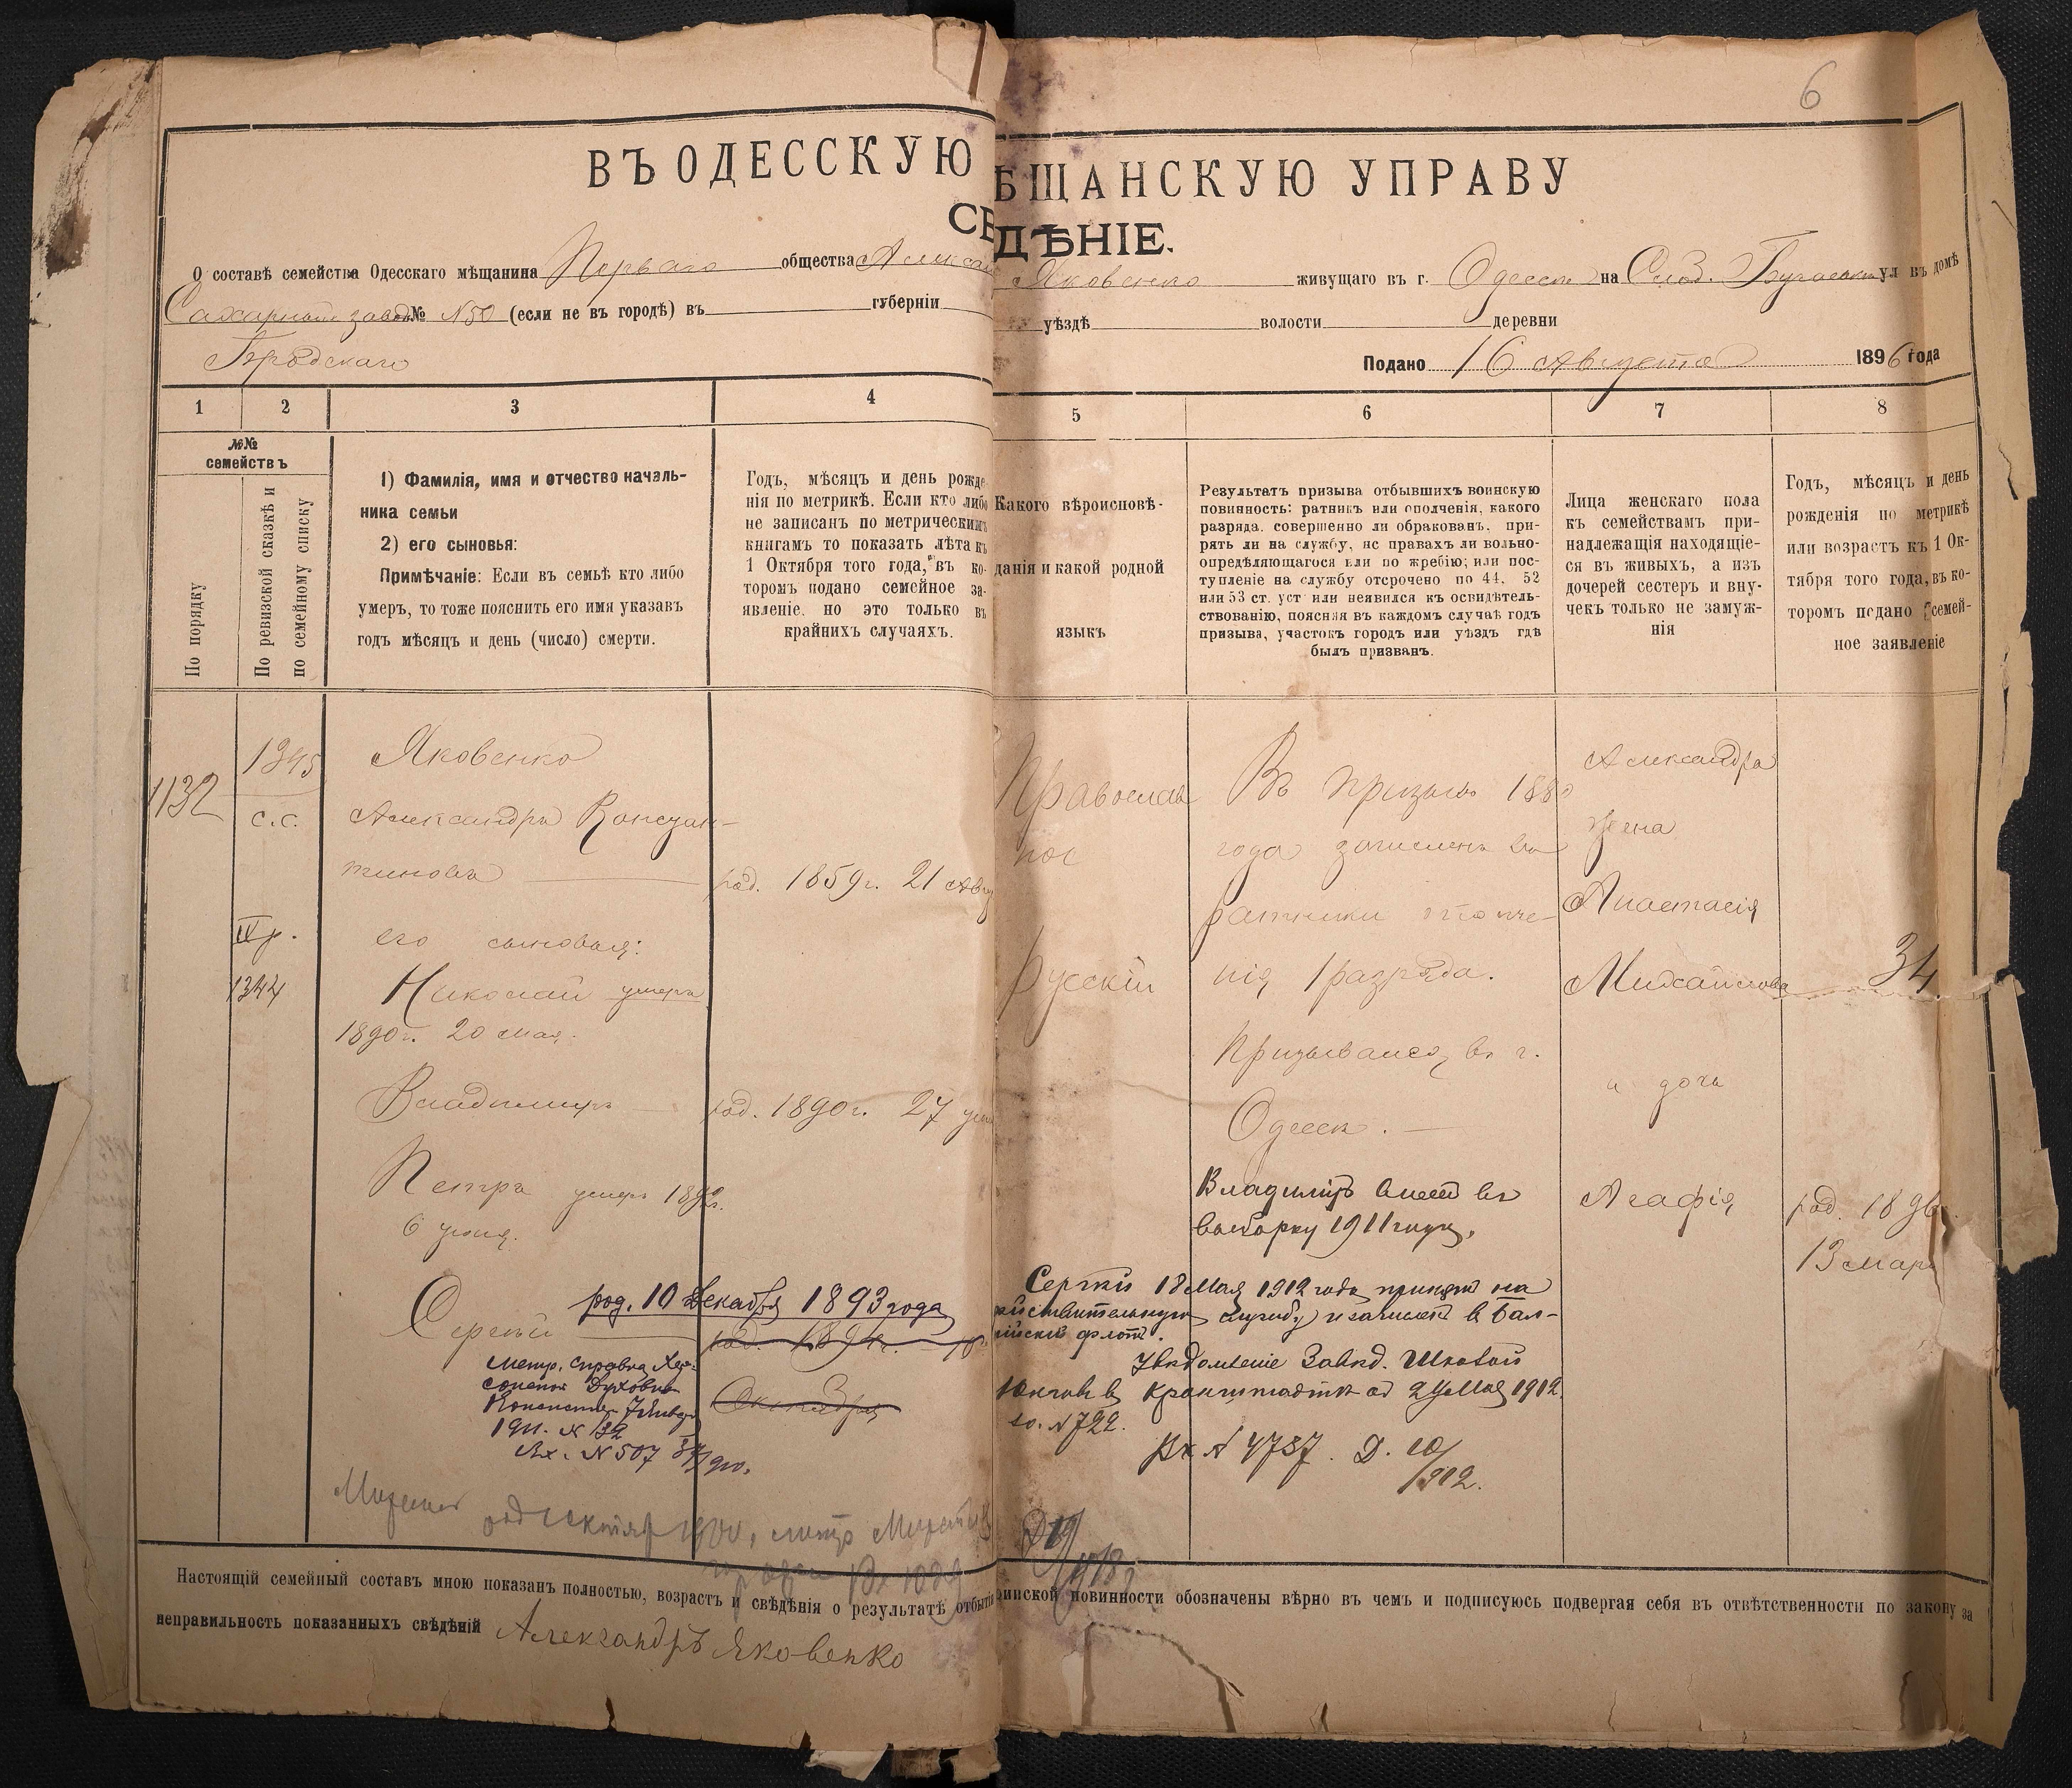 6
ВЪ ОДЕССКУЮ
ѢЩАНСКУЮ УПРАВУ
СВ
ДѢНІЕ.
О составѣ семейства Одесскаго мѣщанина Перваго общества Алексан
Яковенко живущаго въ г. Одессѣ на Слоб. ул въ домѣ
Сахарный завод № N50 (если не въ городѣ) въ губерніи
уѣздѣ волости деревни
Бродскаго
Подано 16 Августа 1896 года
1 2 3 4
5 6 7 8
№№ семействъ
По порядку
По ревизской сказкѣ и по семейному списку
1) Фамилія, имя и отчество началь-
ника семьи
2) его сыновья:
Примѣчаніе: Если въ семьѣ кто либо
умеръ, то тоже пояснить его имя указавъ
годъ мѣсяцъ и день (число) смерти.
Годъ, мѣсяцъ и день рожде
нія по метрикѣ. Если кто либо
не записанъ по метрическимъ
книгамъ то показать лѣта къ
1 Октября того года, въ ко-
торомъ подано семейное за-
явленіе, но это только въ
крайнихъ случаяхъ.
Какого вѣроисповѣ-
данія и какой родной
языкъ
Результатъ призыва отбывшихъ воинскую
повинность: ратникъ или ополченія, какого
разряда, совершенно ли обракованъ, при-
рять ли на службу, нс правахъ ли вольно-
опредѣляющагося или по жребію; или пос-
тупленіе на службу отсрочено по 44, 52
или 53 ст. уст или неявился къ освидѣтель-
ствованію, поясняя въ каждомъ случаѣ годъ
призыва, участокъ городъ или уѣздъ гдѣ
былъ призванъ.
Лица женскаго пола
къ семействамъ при-
надлежащія находящіе-
ся въ живыхъ, а изъ
дочерей сестеръ и вну-
чекъ только не замуж-
нія
Годъ, мѣсяцъ и день
рожденія по метрикѣ
или возрастъ къ 1 Ок-
тября того года, въ ко-
торомъ подано семей-
ное заявленіе
1132
1345
с.с.
IV р.
1344
Яковенко
Александръ Констан-
тиновъ
род. 1859 г. 21 Авгу
его сыновья:
Николай умеръ
1890 г. 20 мая.
Владимиръ род. 1890 г. 27
Петръ умеръ 1892 г.
6 июня.
род. 10 декабря 1893 года
Сергѣй род. 1894 г. 10
Октября
Метр. справка Хер-
сонской Духовной
Консистор. 7 Января
1911. N 132
Вх. N 507
Православ
ное
Русскій
Въ призывъ 1880
года зачисленъ въ
ратники ополче-
нія 1 разряда.
Призывался въ г.
Одессѣ.
Владиміръ внесен въ
выборку 1911 года.
Сергѣй 18 Мая 1912 года принят на
йствительную службу и зачислен в Бал-
тійскій флотъ.
Увѣдомленіе Завѣд. Школой
Юнгов в Кронштадтѣ от 24 Мая 1912.
за N 722.
Вх N 4787. Д. 10/1912.
Александра
жена
Анастасія
Михайлова 34
и дочь
Агафія род. 1896
13 мар
род 1 октября 1900, метр
Вх
Настоящій семейный составъ мною показанъ полностью, возрастъ и свѣдѣнія о результатѣ отбытія
оинской повинности обозначены вѣрно въ чемъ и подписуюсь подвергая себя въ отвѣтственности по закону за
неправильность показанныхъ свѣдѣній Александръ Яковенко